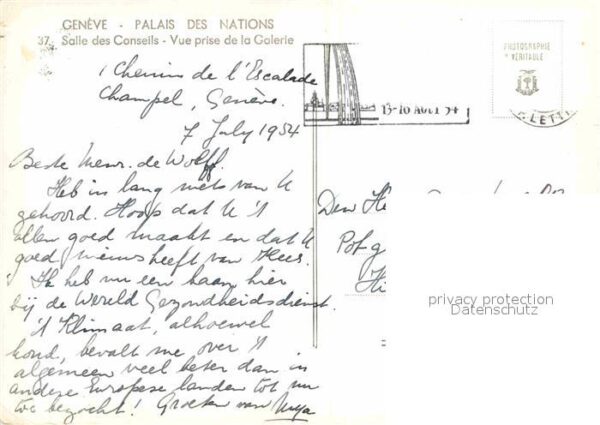 GENÈVE - PALAIS DES NATIONS
37 Salle des Conseils - Vue prise de la Galerie
1 Chemin de l'Escalade
Champel, Genève.
7 July 1954
Beste Menr. de Wolff.
Heb in lang niets van U
gehoord. Hoop dat U 't
allen goed maakt en dat U
goed nieuws heeft van Kees.
Ik heb nu een baan hier
bij de Wereld Gezondheidsdienst.
't Klimaat, alhoewel
koud, bevalt me over 't
algemeen veel beter dan in
andere Europese landen tot nu
toe bezocht! Groeten van
PHOTOGRAPHIE
VÉRITABLE
13-16 AOUT 54
Den
privacy protection
Datenschutz